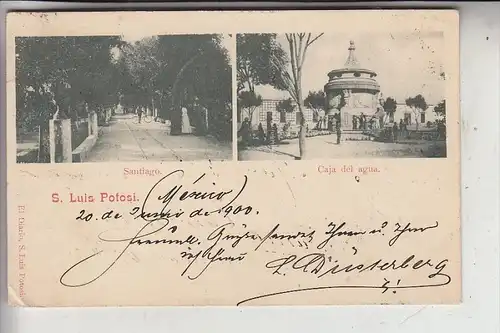 Santiago.
Caja del agua.
S. Luis Potosi.
(México)
20. de Junio de 1900.
Freundl. Grüsse sendet Ihnen u Ihrer
L. Düsterberg
El Diario, S. Luis Potosi.